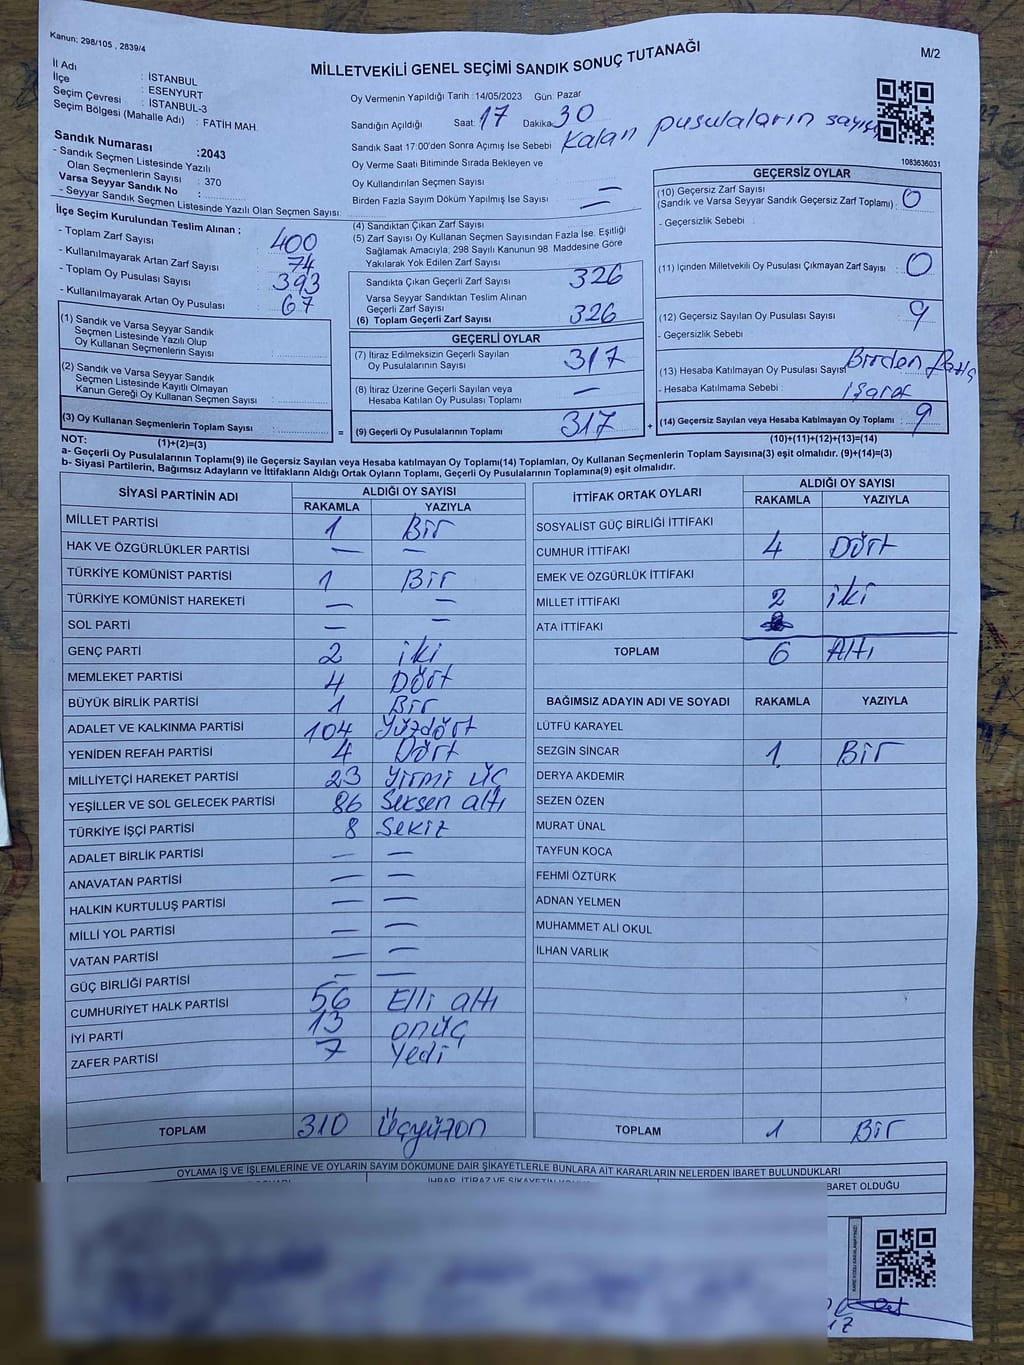 Kanun: 298/105 , 2839/4
MİLLETVEKİLİ GENEL SEÇİMİ SANDIK SONUÇ TUTANAĞI
M/2
İl Adı : İSTANBUL
İlçe : ESENYURT
Seçim Çevresi : İSTANBUL-3
Seçim Bölgesi (Mahalle Adı) : FATİH MAH.
Sandık Numarası :2043
- Sandık Seçmen Listesinde Yazılı
Olan Seçmenlerin Sayısı : 370
Varsa Seyyar Sandık No :
- Seyyar Sandık Seçmen Listesinde Yazılı Olan Seçmen Sayısı:
Oy Vermenin Yapıldığı Tarih :14/05/2023 Gün: Pazar
Sandığın Açıldığı Saat: 17 Dakika: 30
Sandık Saat 17:00'den Sonra Açılmış İse Sebebi Kalan pusulaların sayısı
Oy Verme Saati Bitiminde Sırada Bekleyen ve
Oy Kullandırılan Seçmen Sayısı :
Birden Fazla Sayım Döküm Yapılmış İse Sayısı :
1083636031
İlçe Seçim Kurulundan Teslim Alınan ;
- Toplam Zarf Sayısı : 400
- Kullanılmayarak Artan Zarf Sayısı : 74
- Toplam Oy Pusulası Sayısı : 393
- Kullanılmayarak Artan Oy Pusulası : 67
(1) Sandık ve Varsa Seyyar Sandık
Seçmen Listesinde Yazılı Olup
Oy Kullanan Seçmenlerin Sayısı :
(2) Sandık ve Varsa Seyyar Sandık
Seçmen Listesinde Kayıtlı Olmayan
Kanun Gereği Oy Kullanan Seçmen Sayısı :
(3) Oy Kullanan Seçmenlerin Toplam Sayısı :
(1)+(2)=(3)
(4) Sandıktan Çıkan Zarf Sayısı :
(5) Zarf Sayısı Oy Kullanan Seçmen Sayısından Fazla İse, Eşitliği
Sağlamak Amacıyla, 298 Sayılı Kanunun 98. Maddesine Göre
Yakılarak Yok Edilen Zarf Sayısı :
Sandıkta Çıkan Geçerli Zarf Sayısı : 326
Varsa Seyyar Sandıktan Teslim Alınan
Geçerli Zarf Sayısı :
(6) Toplam Geçerli Zarf Sayısı : 326
GEÇERLİ OYLAR
(7) İtiraz Edilmeksizin Geçerli Sayılan
Oy Pusulalarının Sayısı : 317
(8) İtiraz Üzerine Geçerli Sayılan veya
Hesaba Katılan Oy Pusulası Toplamı : —
= (9) Geçerli Oy Pusulalarının Toplamı : 317
GEÇERSİZ OYLAR
(10) Geçersiz Zarf Sayısı
(Sandık ve Varsa Seyyar Sandık Geçersiz Zarf Toplamı) : 0
- Geçersizlik Sebebi :
(11) İçinden Milletvekili Oy Pusulası Çıkmayan Zarf Sayısı : 0
(12) Geçersiz Sayılan Oy Pusulası Sayısı : 9
- Geçersizlik Sebebi :
(13) Hesaba Katılmayan Oy Pusulası Sayısı : Birden fazla
- Hesaba Katılmama Sebebi : işaret
+ (14) Geçersiz Sayılan veya Hesaba Katılmayan Oy Toplamı : 9
(10)+(11)+(12)+(13)=(14)
NOT:
a- Geçerli Oy Pusulalarının Toplamı(9) ile Geçersiz Sayılan veya Hesaba katılmayan Oy Toplamı(14) Toplamları, Oy Kullanan Seçmenlerin Toplam Sayısına(3) eşit olmalıdır. (9)+(14)=(3)
b- Siyasi Partilerin, Bağımsız Adayların ve İttifakların Aldığı Ortak Oyların Toplamı, Geçerli Oy Pusulalarının Toplamına(9) eşit olmalıdır.
SİYASİ PARTİNİN ADI ALDIĞI OY SAYISI
RAKAMLA YAZIYLA
MİLLET PARTİSİ 1 Bir
HAK VE ÖZGÜRLÜKLER PARTİSİ — —
TÜRKİYE KOMÜNİST PARTİSİ 1 Bir
TÜRKİYE KOMÜNİST HAREKETİ — —
SOL PARTİ — —
GENÇ PARTİ 2 iki
MEMLEKET PARTİSİ 4 Dört
BÜYÜK BİRLİK PARTİSİ 1 Bir
ADALET VE KALKINMA PARTİSİ 104 Yüzdört
YENİDEN REFAH PARTİSİ 4 Dört
MİLLİYETÇİ HAREKET PARTİSİ 23 Yirmi üç
YEŞİLLER VE SOL GELECEK PARTİSİ 86 Seksen altı
TÜRKİYE İŞÇİ PARTİSİ 8 Sekiz
ADALET BİRLİK PARTİSİ — —
ANAVATAN PARTİSİ — —
HALKIN KURTULUŞ PARTİSİ — —
MİLLİ YOL PARTİSİ — —
VATAN PARTİSİ — —
GÜÇ BİRLİĞİ PARTİSİ — —
CUMHURİYET HALK PARTİSİ 56 Elli altı
İYİ PARTİ 13 onüç
ZAFER PARTİSİ 7 Yedi
TOPLAM 310 Üçyüzon
İTTİFAK ORTAK OYLARI ALDIĞI OY SAYISI
RAKAMLA YAZIYLA
SOSYALİST GÜÇ BİRLİĞİ İTTİFAKI
CUMHUR İTTİFAKI 4 Dört
EMEK VE ÖZGÜRLÜK İTTİFAKI
MİLLET İTTİFAKI 2 iki
ATA İTTİFAKI
TOPLAM 6 Altı
BAĞIMSIZ ADAYIN ADI VE SOYADI RAKAMLA YAZIYLA
LÜTFÜ KARAYEL
SEZGİN SİNCAR 1 Bir
DERYA AKDEMİR
SEZEN ÖZEN
MURAT ÜNAL
TAYFUN KOCA
FEHMİ ÖZTÜRK
ADNAN YELMEN
MUHAMMET ALİ OKUL
İLHAN VARLIK
TOPLAM 1 Bir
OYLAMA İŞ VE İŞLEMLERİNE VE OYLARIN SAYIM DÖKÜMÜNE DAİR ŞİKAYETLERLE BUNLARA AİT KARARLARIN NELERDEN İBARET BULUNDUKLARI
BARET OLDUĞU